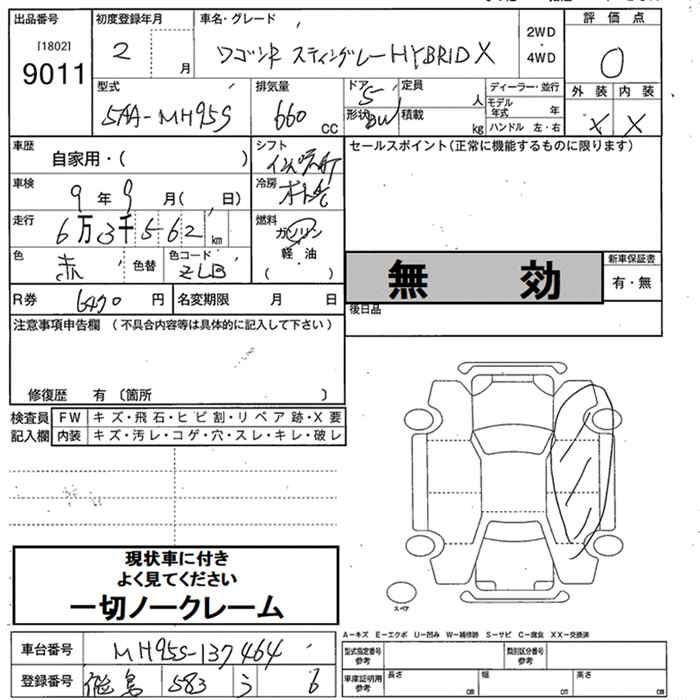 出品番号
[1802]
9011
初度登録年月
2 月
車名・グレード
ワゴンR スティングレー HYBRID X
2WD
・
4WD
評価点
0
外装 内装
X X
型式
5AA-MH95S
排気量
660 cc
ドア 5
形状 BW
定員 人
積載 kg
ディーラー・並行
モデル年式 年
ハンドル 左・右
車歴
自家用・( )
シフト
冷房
車検
9年9月( 日)
走行
6万3千562 km
燃料
ガソリン
軽・油
( )
色
赤
色替
色コード
ZLB
R券 6470 円
名変期限 月 日
セールスポイント(正常に機能するものに限ります)
無効
新車保証書
有・無
後日品
注意事項申告欄 (不具合内容等は具体的に記入して下さい)
修復歴 有 〔箇所 〕
検査員記入欄
FW キズ・飛石・ヒビ割・リペア跡・X要
内装 キズ・汚レ・コゲ・穴・スレ・キレ・破レ
現状車に付き
よく見てください
一切ノークレーム
スペア
A－キズ E－エクボ U－凹み W－補修跡 S－サビ C－腐食 XX－交換済
車台番号 MH95S-137464
登録番号 徳島 583 う 6
型式指定番号 参考
類別区分番号 参考
車庫証明用 参考
長さ cm
幅 cm
高さ cm